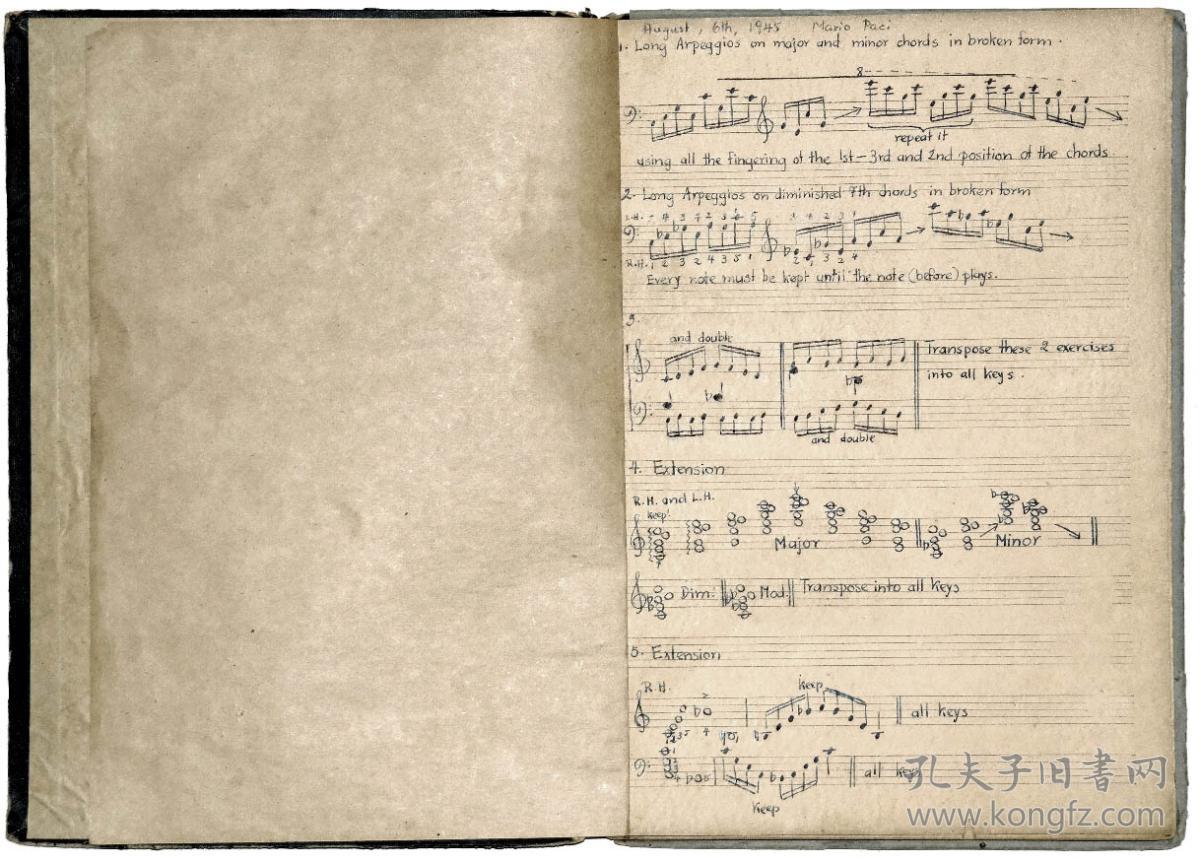 August, 6th, 1945 Mario Paci
1. Long Arpeggios on major and minor chords in broken form.
8
repeat it
using all the fingering of the 1st-3rd and 2nd position of the chords
2. Long Arpeggios on diminished 7th chords in broken form
R.H. 1 2 3 2 4 3 5 1
Every note must be kept until the note (before) plays.
3.
and double
Transpose these 2 exercises
into all keys.
and double
4. Extension
R.H. and L.H.
keep!
Major
Minor
Dim.
Mod.
Transpose into all keys
5. Extension
R.H.
keep
all keys
all keys
keep
孔夫子旧書网
www.kongfz.com